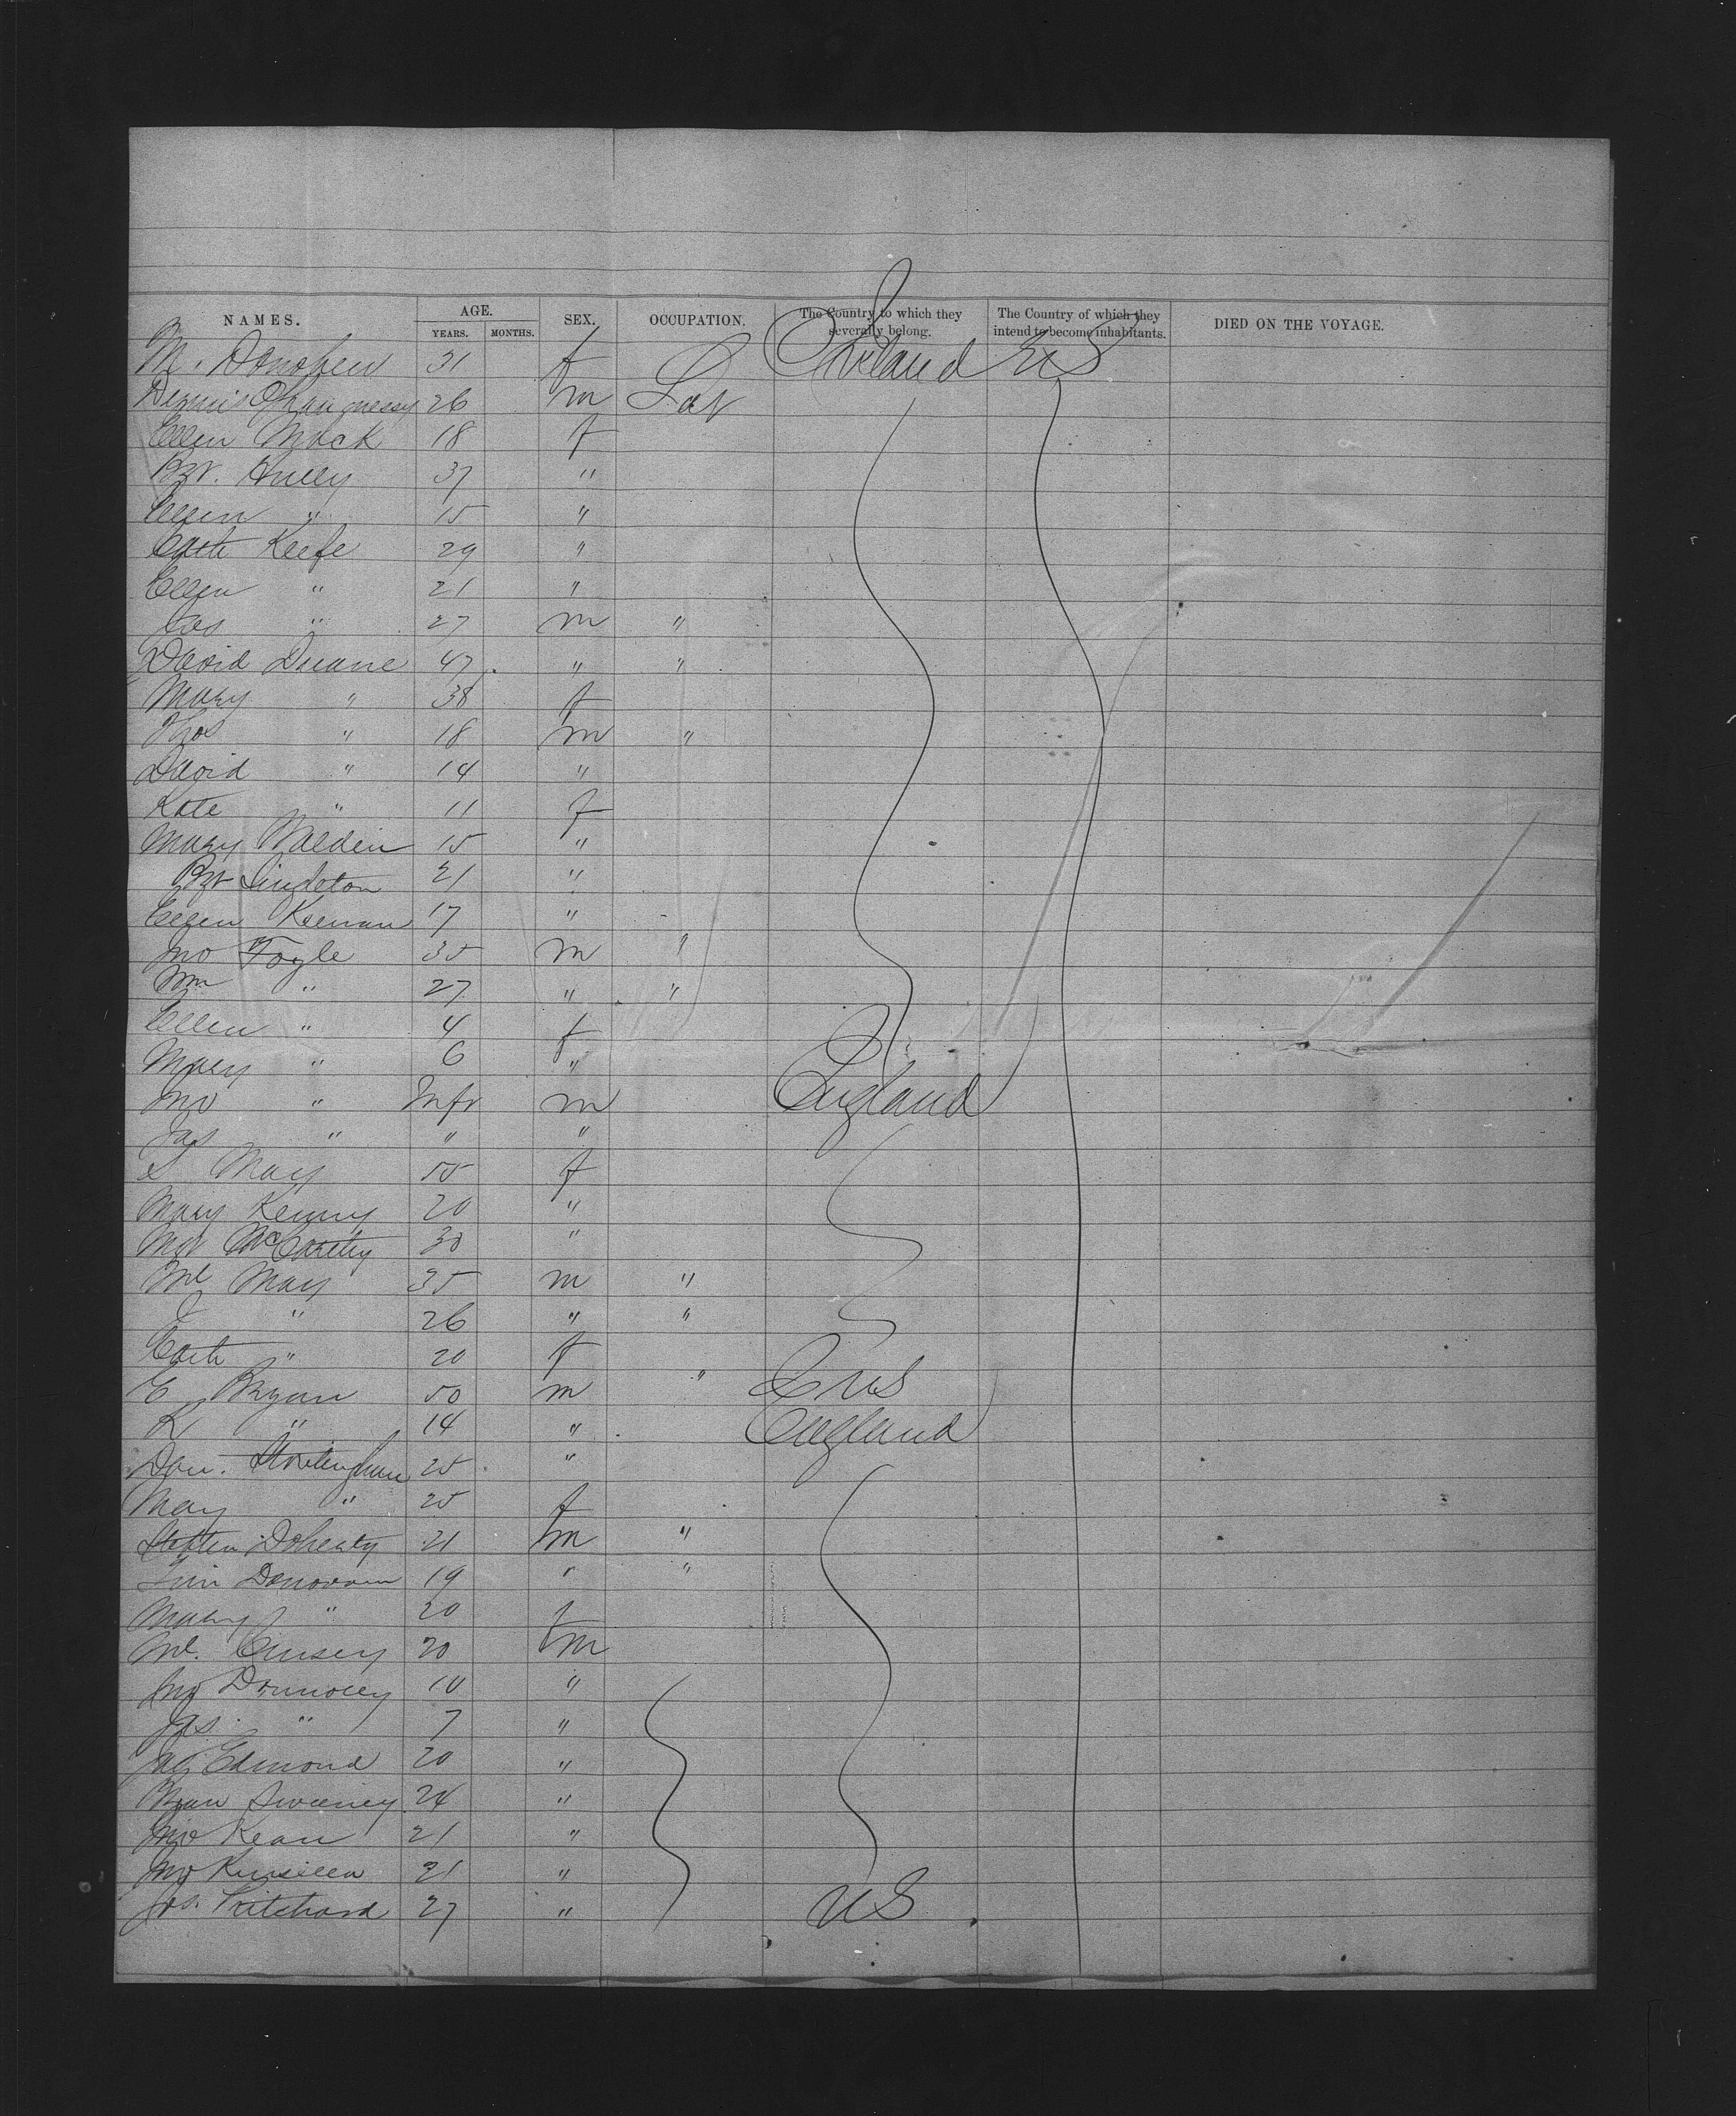 NAMES. AGE. YEARS. MONTHS. SEX. OCCUPATION. The Country to which they severally belong. The Country of which they intend to become inhabitants. DIED ON THE VOYAGE.
M. Donohew 31 f Ireland US
Dennis Ohaugnessy 26 m Lab
Ellen Mack 18 f
Bgt. 37 "
Ellen " 15 "
Cath Keefe 29 "
Ellen " 21 "
Jas " 27 m "
David Duane 47 " "
Mary " 38 f
Thos " 18 m "
David " 14 "
Kate " 11 f
Mary Walden 15 "
Bgt Singleton 21 "
Ellen Keenan 17 "
Jno Fogle 35 m "
Wm " 27 " "
Ellen " 4 f
Mary " 6 "
Jno " Inft m England
Jas " " "
S May 55 f
Mary Kenny 20 "
Mgt McCarthy 30 "
Ml May 35 m "
J " 26 " "
Cath " 20 f
E Bryan 50 m " US
K " 14 " England
Dan. 25 "
Mary " 25 f
Stephen Doherty 21 m "
Tim Donovan 19 " "
Mary " 20 f
Ml. 20 m
Jno Donnolly 10 "
Jas. " 7 "
Edmond 20 "
Bryan Sweeney 24 "
Jno Kean 21 "
Jno Kinsella 21 "
Jos. Pritchard 27 " US